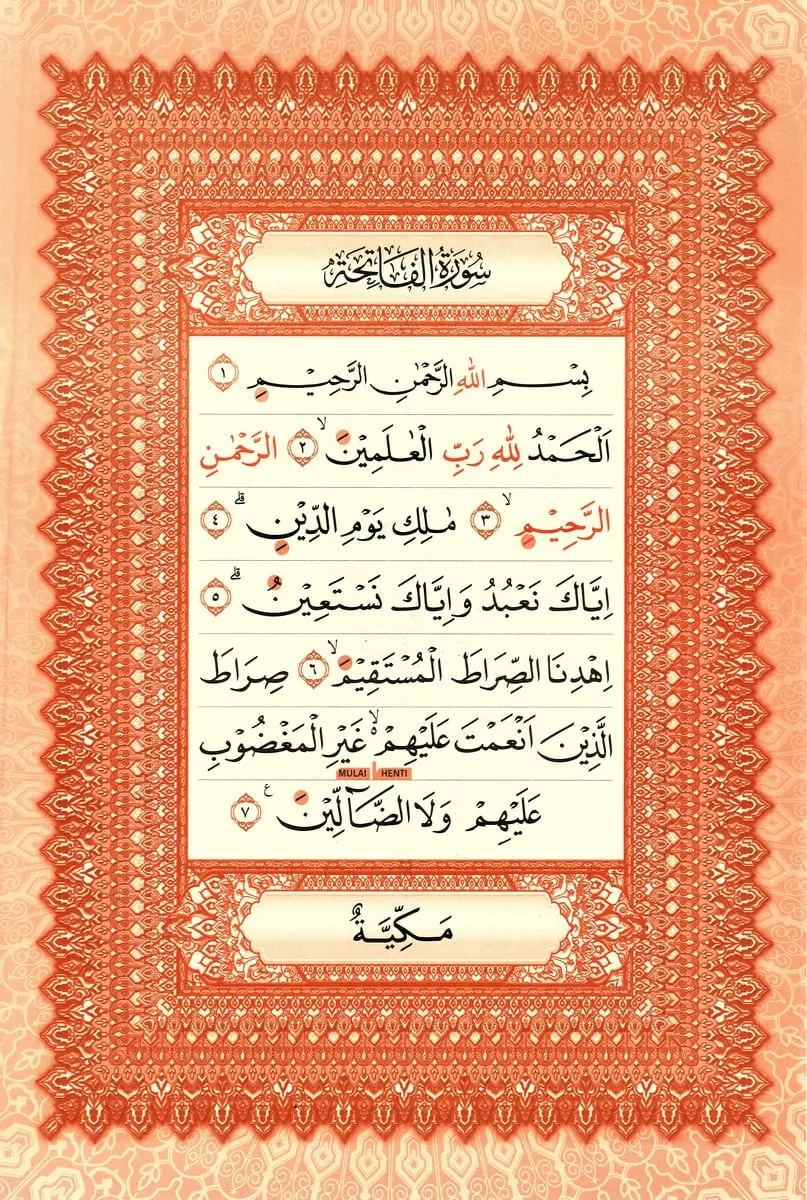 سُورَةُ الْفَاتِحَةِ
بِسْمِ اللهِ الرَّحْمٰنِ الرَّحِيْمِ ۝١
اَلْحَمْدُ لِلّٰهِ رَبِّ الْعٰلَمِيْنَۙ ۝٢ الرَّحْمٰنِ
الرَّحِيْمِۙ ۝٣ مٰلِكِ يَوْمِ الدِّيْنِۗ ۝٤
اِيَّاكَ نَعْبُدُ وَاِيَّاكَ نَسْتَعِيْنُۗ ۝٥
اِهْدِنَا الصِّرَاطَ الْمُسْتَقِيْمَۙ ۝٦ صِرَاطَ
الَّذِيْنَ اَنْعَمْتَ عَلَيْهِمْ ەۙ غَيْرِ الْمَغْضُوْبِ
MULAI HENTI
عَلَيْهِمْ وَلَا الضَّاۤلِّيْنَ ع ۝٧
مَكِّيَّةٌ